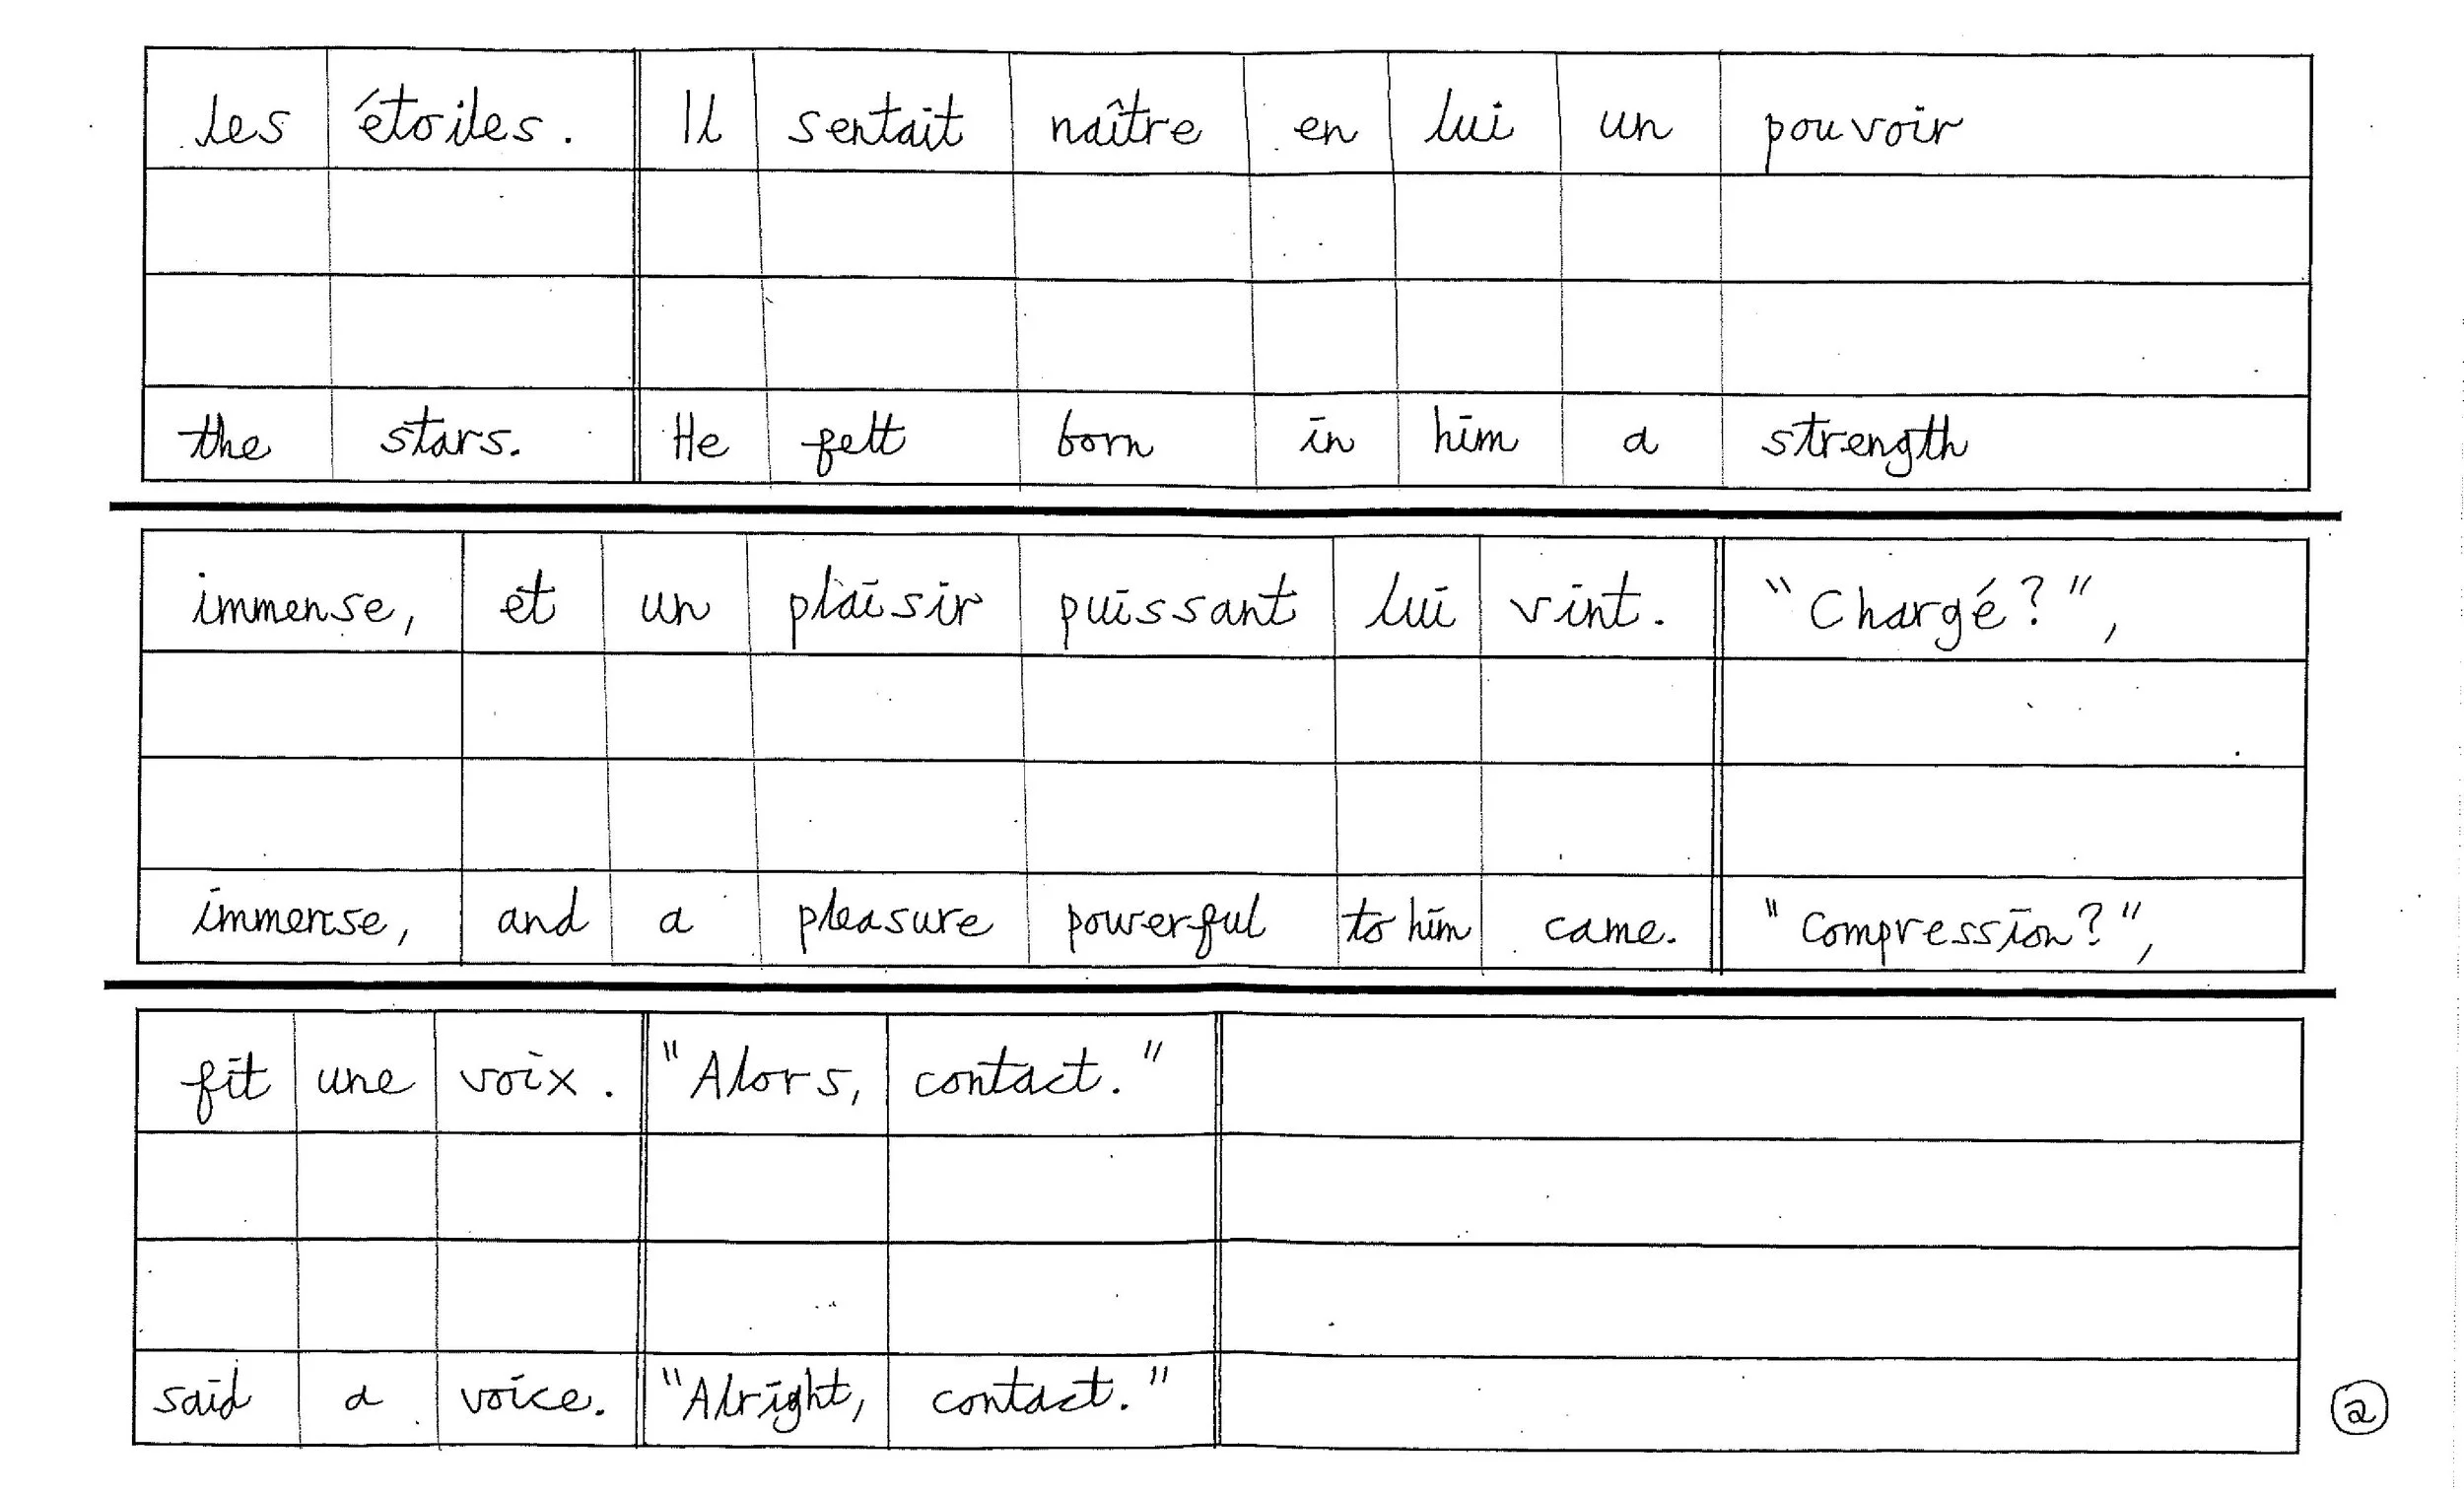 les étoiles. Il sentait naître en lui un pouvoir
the stars. He felt born in him a strength
immense, et un plaisir puissant lui vint. "Chargé?",
immense, and a pleasure powerful to him came. "Compression?",
fit une voix. "Alors, contact."
said a voice. "Alright, contact."
2